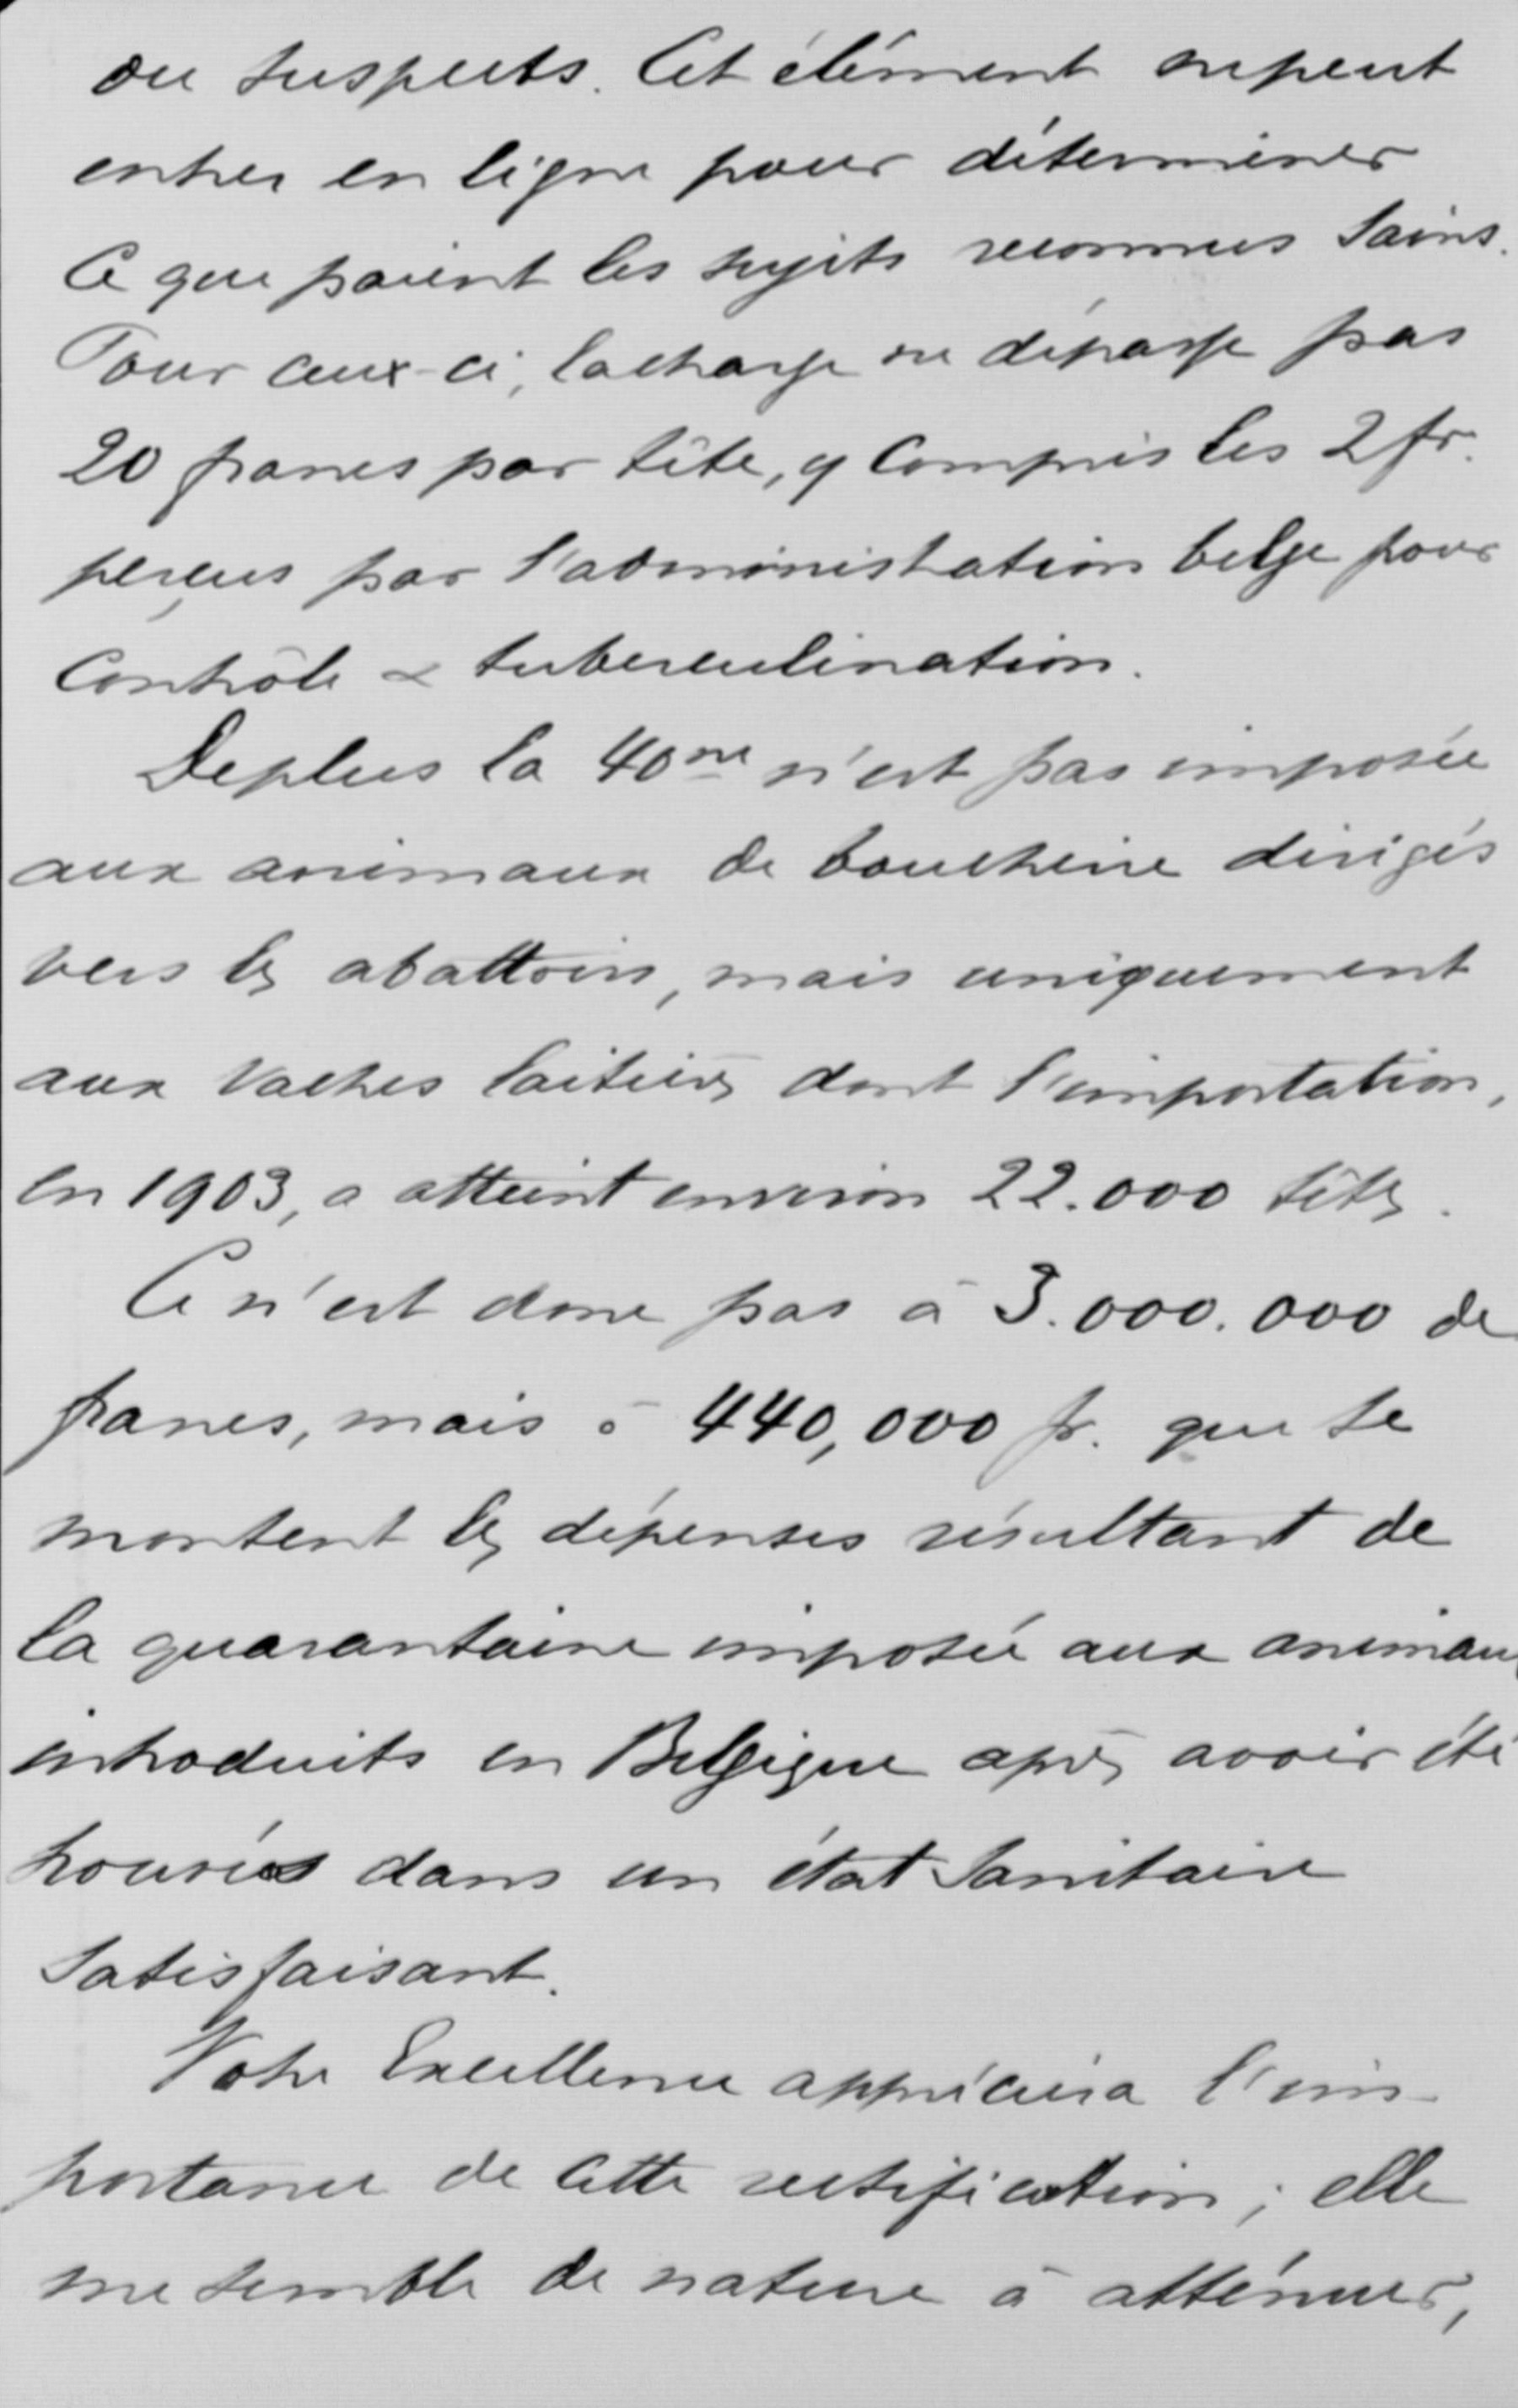 ou suspects. Cet élément ne peut
entrer en ligne pour déterminer
Ce que paient les sujets reconnus Sains.
Pour ceux-ci, la charge ne dépasse pas
20 francs par tête, y Compris les 2 fr.
perçus par l'administration belge pour
Contrôle & tuberculination.
De plus la 40ne n'est pas imposée
aux animaux de boucherie dirigés
vers les abattoirs, mais uniquement
aux Vaches laitières dont l'importation,
en 1903, a atteint environ 22.000 têtes.
Ce n'est donc pas à 3.000.000 de
francs, mais à 440,000 fr. que se
montent les dépenses résultant de
la quarantaine imposée aux animaux
introduits en Belgique après avoir été
trouvés dans un état Sanitaire
Satisfaisant.
Votre Excellence appréciera l'im-
portance de cette rectification ; elle
me semble de nature à atténuer,